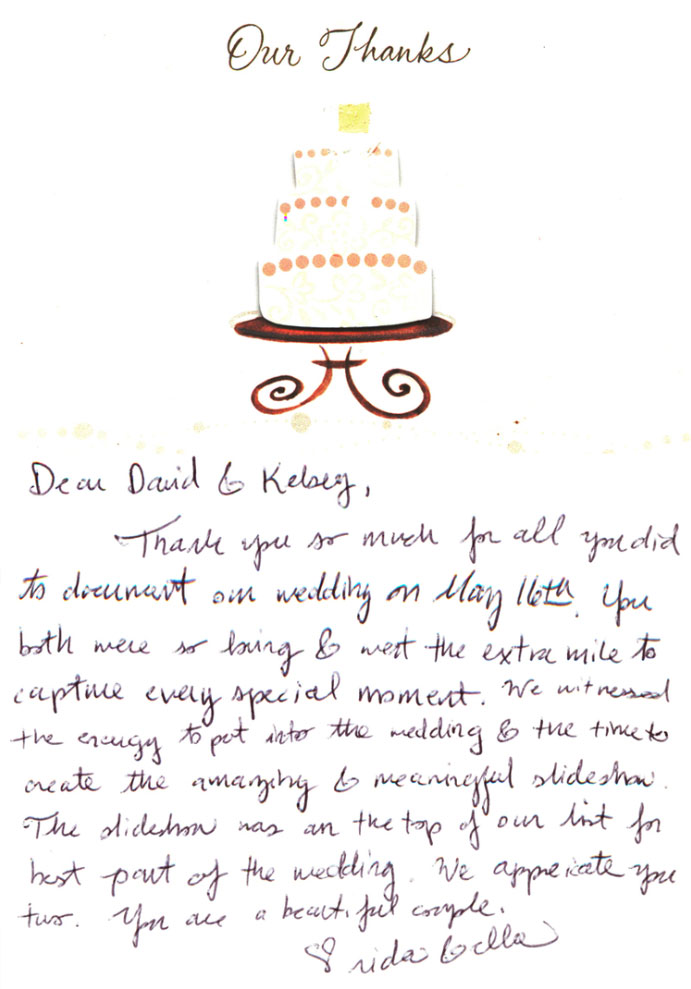 Our Thanks
Dear David & Kelsey,
Thank you so much for all you did
to document our wedding on May 16th. You
both were so loving & went the extra mile to
capture every special moment. We witnessed
the energy to put into the wedding & the time to
create the amazing & meaningful slideshow.
The slideshow was on the top of our list for
best part of the wedding. We appreciate you
two. You are a beautiful couple.